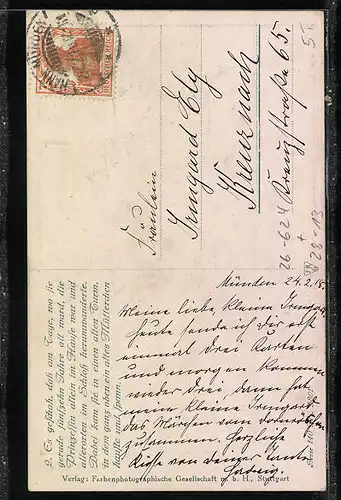 Fräulein
Irmgard Ely
Kreuznach
Kreuzstraße 65.
26-624
28-13
2. Es geschah, daß am Tage, wo sie
gerade fünfzehn Jahre alt ward, die
Prinzessin allein im Hause war und
allerorten im Schloß herumwanderte.
Dabei kam sie in einen alten Turm,
in dem ganz oben ein altes Mütterchen
hauste und spann.
Münden 24.2.18.
Meine liebe, kleine Irmgard,
heute sende ich Dir erst
einmal drei Karten
und morgen kommen
wieder drei, dann hat
meine kleine Irmgard
das Märchen vom Dornröschen
zusammen. Herzliche
Grüße von Deiner Tante
Hedwig.
Verlag: Farbenphotographische Gesellschaft m. b. H., Stuttgart